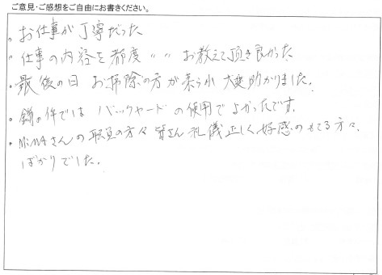 ご意見・ご感想をご自由にお書きください。
。お仕事が丁寧だった
・仕事の内容を都度〃〃お教えて頂き良かった
・最後の日 お掃除の方が来られ大変助かりました。
・鍵の件ではバックヤードの使用でよかったです。
・さんの職員の方々皆さん礼儀正しく好感のもてる方々
ばかりでした。